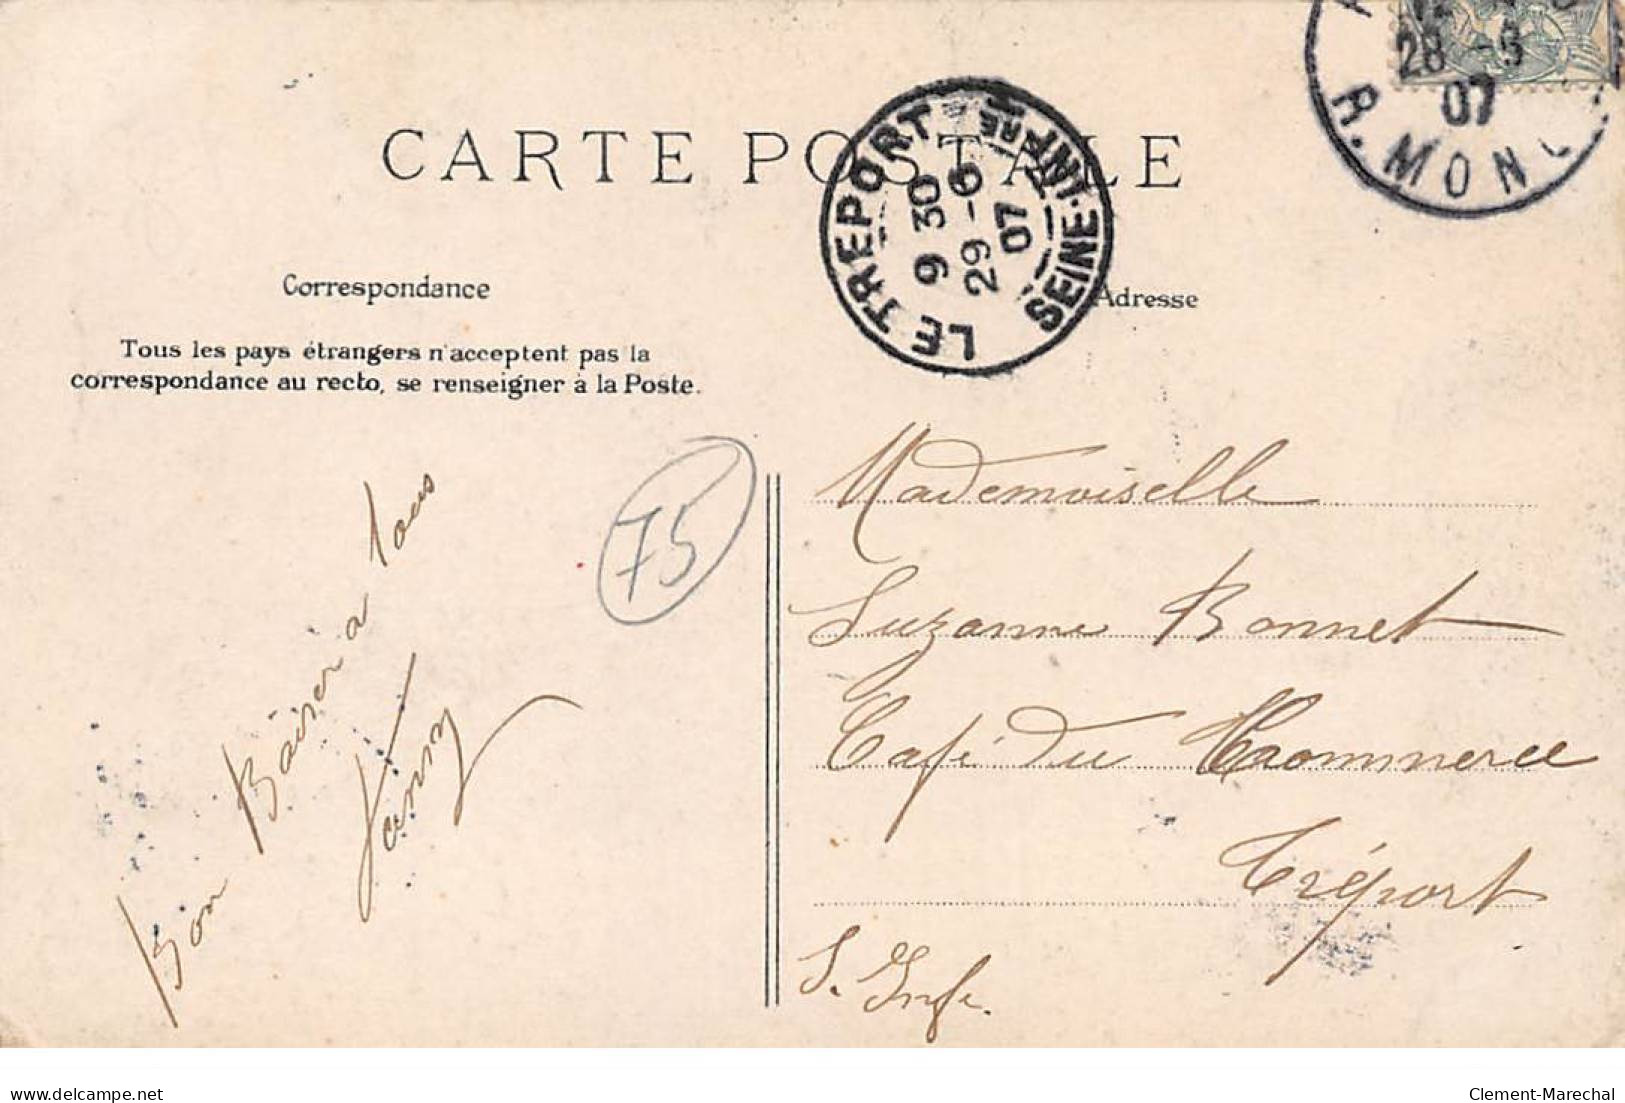 CARTE POSTALE
28 -6
07
R. MON
LE TREPORT SEINE-INFRE
9 30
29 -6
07
Correspondance
Adresse
Tous les pays étrangers n'acceptent pas la
correspondance au recto, se renseigner à la Poste.
75
Bon Baiser a tous
Mademoiselle
Suzanne Bonnet
Café du Commerce
Tréport
S. Infe.
www.delcampe.net
Clement-Marechal